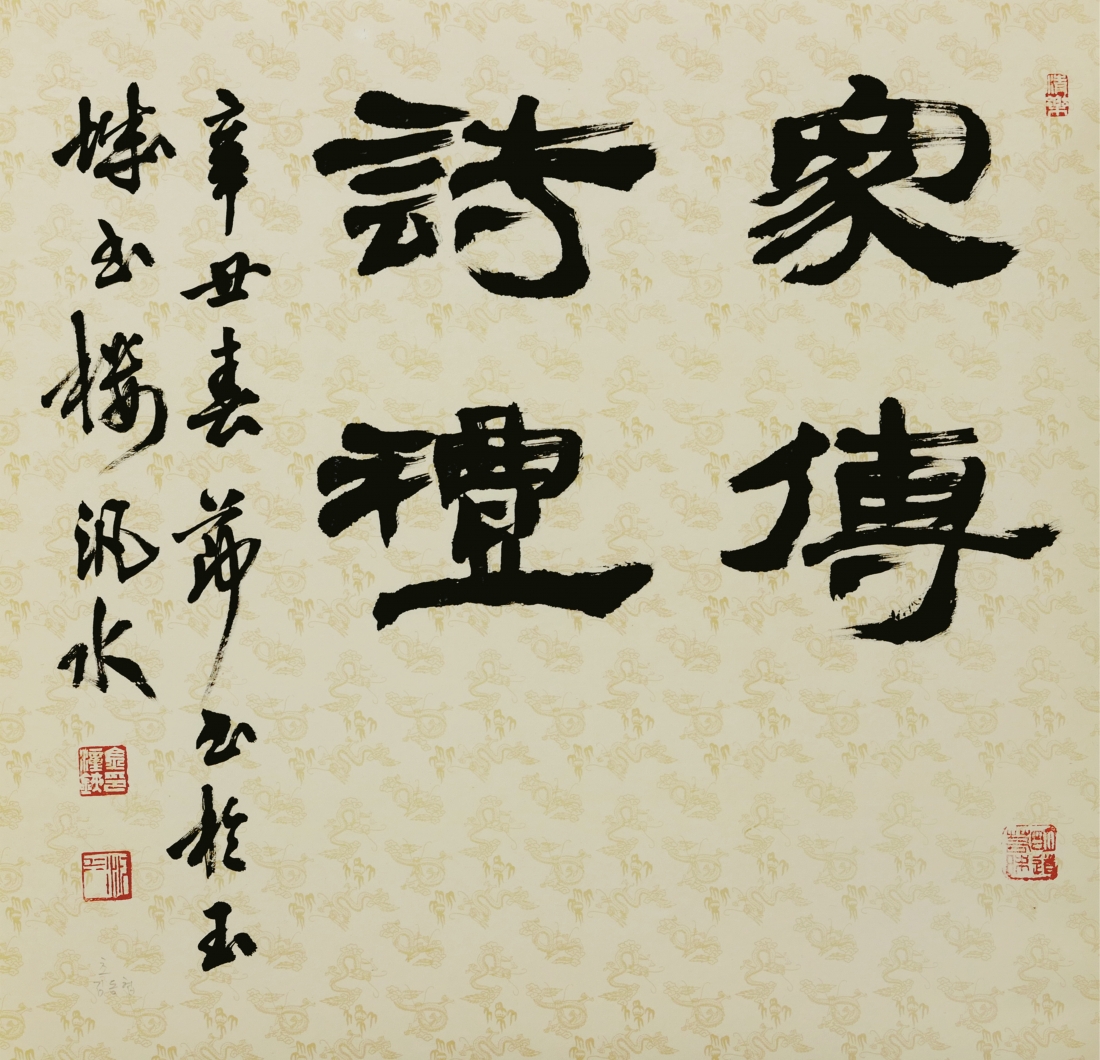 家傳
詩禮
辛丑春節書於玉
城書樓汎水